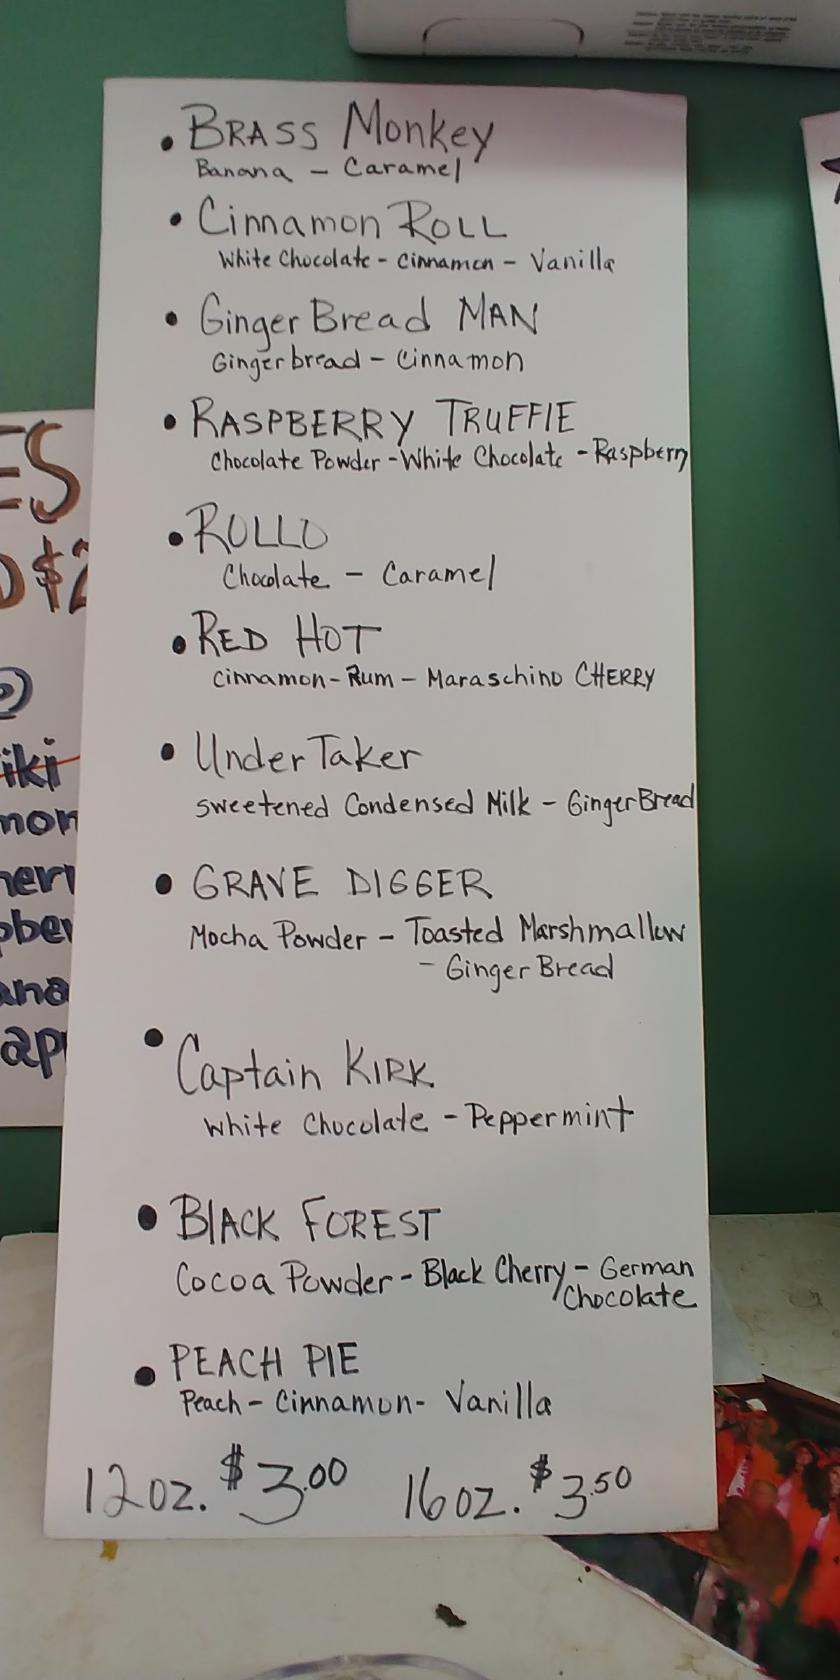 • BRASS Monkey
Banana – Caramel
• Cinnamon ROLL
White Chocolate - Cinnamon - Vanilla
• Ginger Bread MAN
Gingerbread – Cinnamon
• RASPBERRY TRUFFlE
Chocolate Powder - White Chocolate - Raspberry
• ROLLO
Chocolate – Caramel
• RED HOT
Cinnamon - Rum – Maraschino CHERRY
• UnderTaker
Sweetened Condensed Milk – GingerBread
• GRAVE DIGGER
Mocha Powder – Toasted Marshmallow
– Ginger Bread
• Captain KIRK
White Chocolate – Peppermint
• BlACK FOREST
Cocoa Powder - Black Cherry - German
Chocolate
• PEACH PIE
Peach – Cinnamon - Vanilla
12 oz. $3.00 16 oz. $3.50
ES
$2
iki